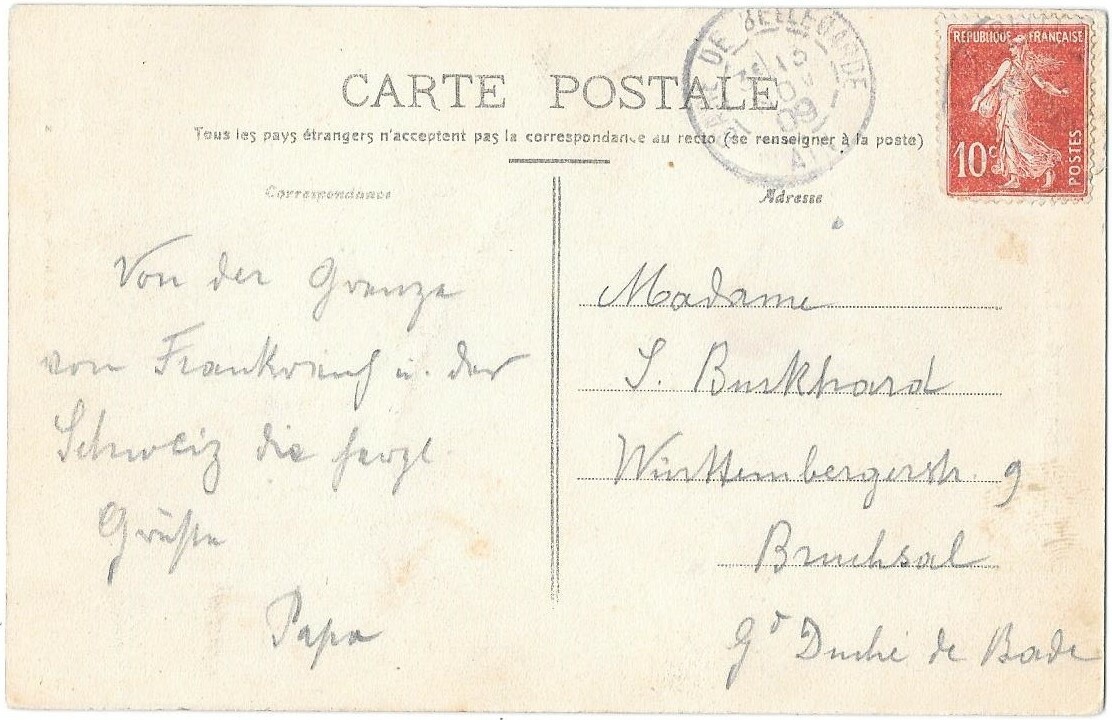 CARTE POSTALE
Tous les pays étrangers n'acceptent pas la correspondance au recto (se renseigner à la poste)
GARE DE BELLEGARDE
09
AIN
REPUBLIQUE FRANÇAISE
10c
POSTES
Correspondance
Von der Grenze
von Frankreich u. der
Schweiz die herzl.
Grüße
Papa
Adresse
Madame
S. Burkhard
Württembergerstr. 9
Bruchsal
Gd Duché de Bade